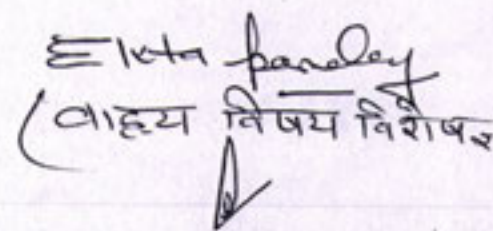 Ekta Pandey
(वाह्य विषय विशेषज्ञ